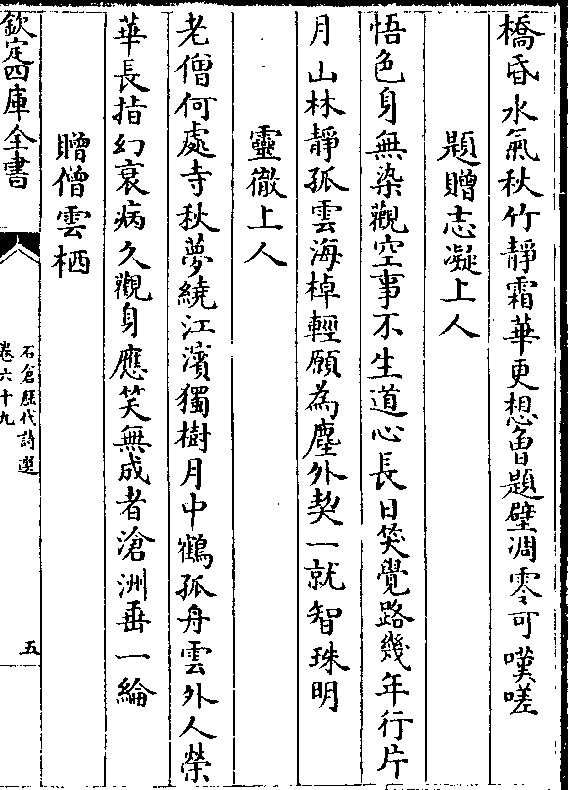 橋昏水氣秋竹靜霜華更想曾題壁凋零可嘆嗟
題贈志凝上人
悟色身無染觀空事不生道心長日笑覺路幾年行片
月山林靜孤雲海棹輕願為塵外契一就智珠明
靈徹上人
老僧何處寺秋夢繞江濱獨樹月中鶴孤舟雲外人榮
華長指幻衰病久觀身應笑無成者滄洲垂一綸
贈僧雲栖
欽定四庫全書
石倉歷代詩選
卷六十九
五